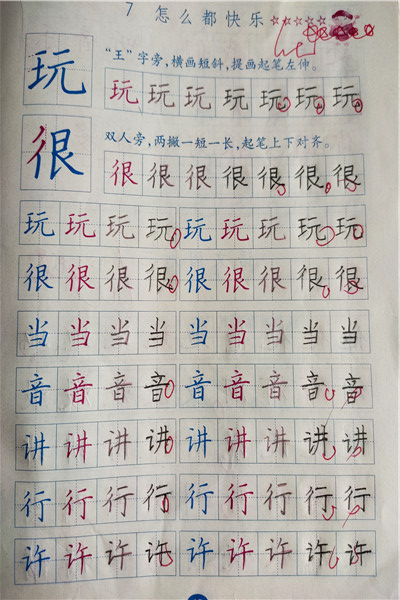 7 怎么都快乐☆☆☆☆☆
玩
“王”字旁，横画短斜，提画起笔左伸。
玩玩玩玩玩玩玩
很
双人旁，两撇一短一长，起笔上下对齐。
很很很很很很很
玩玩玩玩玩玩玩玩
很很很很很很很很
当当当当当当当当
音音音音音音音音
讲讲讲讲讲讲讲讲
行行行行行行行行
许许许许许许许许